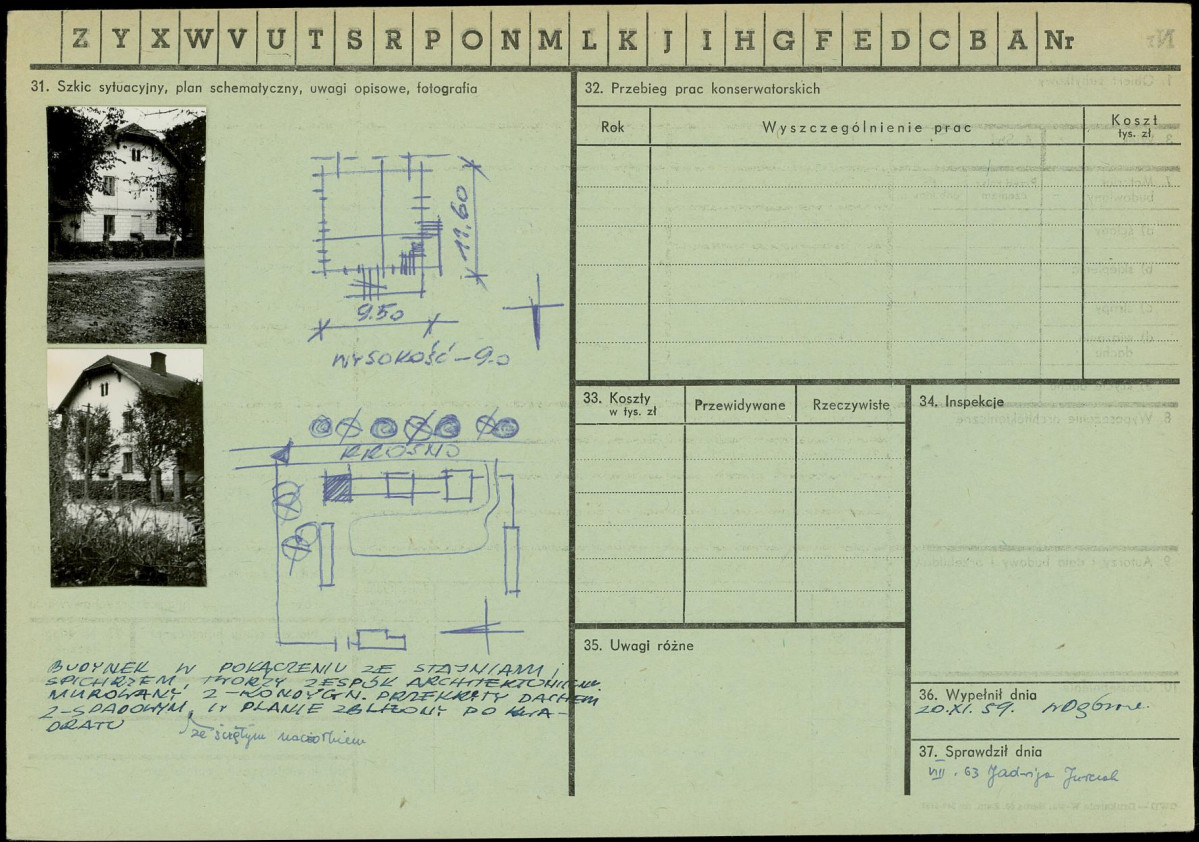 Z Y X W V U T S R P O N M L K J I H G F E D C B A Nr
31. Szkic sytuacyjny, plan schematyczny, uwagi opisowe, fotografia
11.60
9.50
WYSOKOŚĆ - 9.0
KROŚNO
BUDYNEK W POŁĄCZENIU ZE STAJNIAMI i
SPICHRZEM, TWORZY ZESPÓŁ ARCHITEKTONICZNY.
MUROWANY, 2-KONDYGN. PRZEKRYTY DACHEM
2-SPADOWYM, W PLANIE ZBLIŻONY DO KWA-
DRATU
ze ściętym naczółkiem
32. Przebieg prac konserwatorskich
Rok
Wyszczególnienie prac
Koszt
tys. zł
33. Koszty
w tys. zł
Przewidywane
Rzeczywiste
34. Inspekcje
35. Uwagi różne
36. Wypełnił dnia
20.XI.59.
37. Sprawdził dnia
VIII. 63 Jadwiga